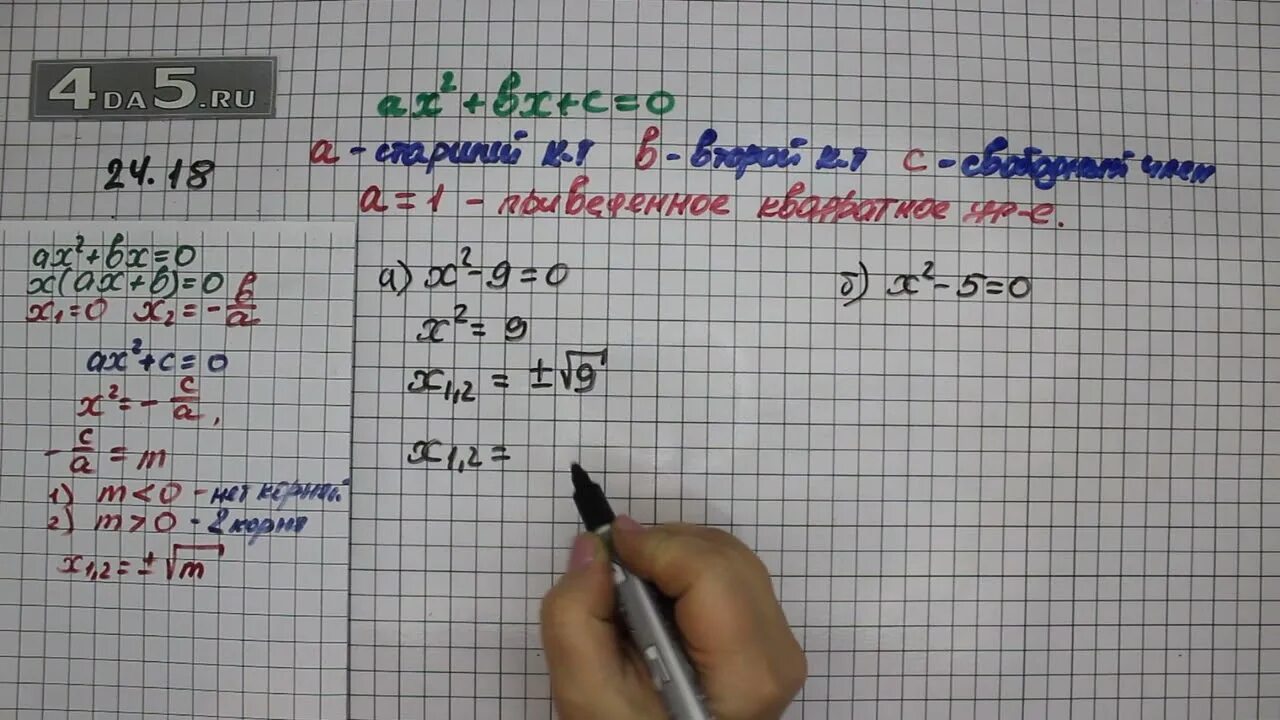 4DA5.RU
ax²+bx+c=0
24.18
a - старший к.т b - второй к.т c - свободный член
a=1 - приведенное квадратное ур-е.
ax²+bx=0
x(ax+b)=0
x₁=0 x₂=-b/a
ax²+c=0
x²=-c/a,
-c/a=m
1) m<0 - нет корней
2) m>0 - 2 корня
x₁,₂=±√m
а) x²-9=0
x²=9
x₁,₂=±√9
x₁,₂=
б) x²-5=0